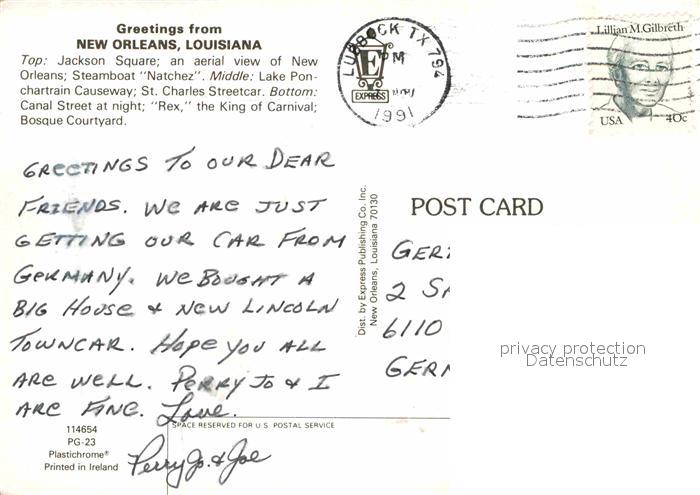 Greetings from
NEW ORLEANS, LOUISIANA
Top: Jackson Square; an aerial view of New
Orleans; Steamboat "Natchez". Middle: Lake Pon-
chartrain Causeway; St. Charles Streetcar. Bottom:
Canal Street at night; "Rex," the King of Carnival;
Bosque Courtyard.
LUBBOCK TX 794
PM
1991
E
EXPRESS
Lillian M. Gilbreth
USA 40c
GREETINGS TO OUR DEAR
FRIENDS. WE ARE JUST
GETTING OUR CAR FROM
GERMANY. WE BOUGHT A
BIG HOUSE & NEW LINCOLN
TOWNCAR. HOPE YOU ALL
ARE WELL. PERRY JO & I
ARE FINE. Love.
Perry Jo. & Joe
Dist. by Express Publishing Co. Inc.
New Orleans, Louisiana 70130
POST CARD
GERI
2 SA
6110
GERM
privacy protection
Datenschutz
SPACE RESERVED FOR U.S. POSTAL SERVICE
114654
PG-23
Plastichrome®
Printed in Ireland